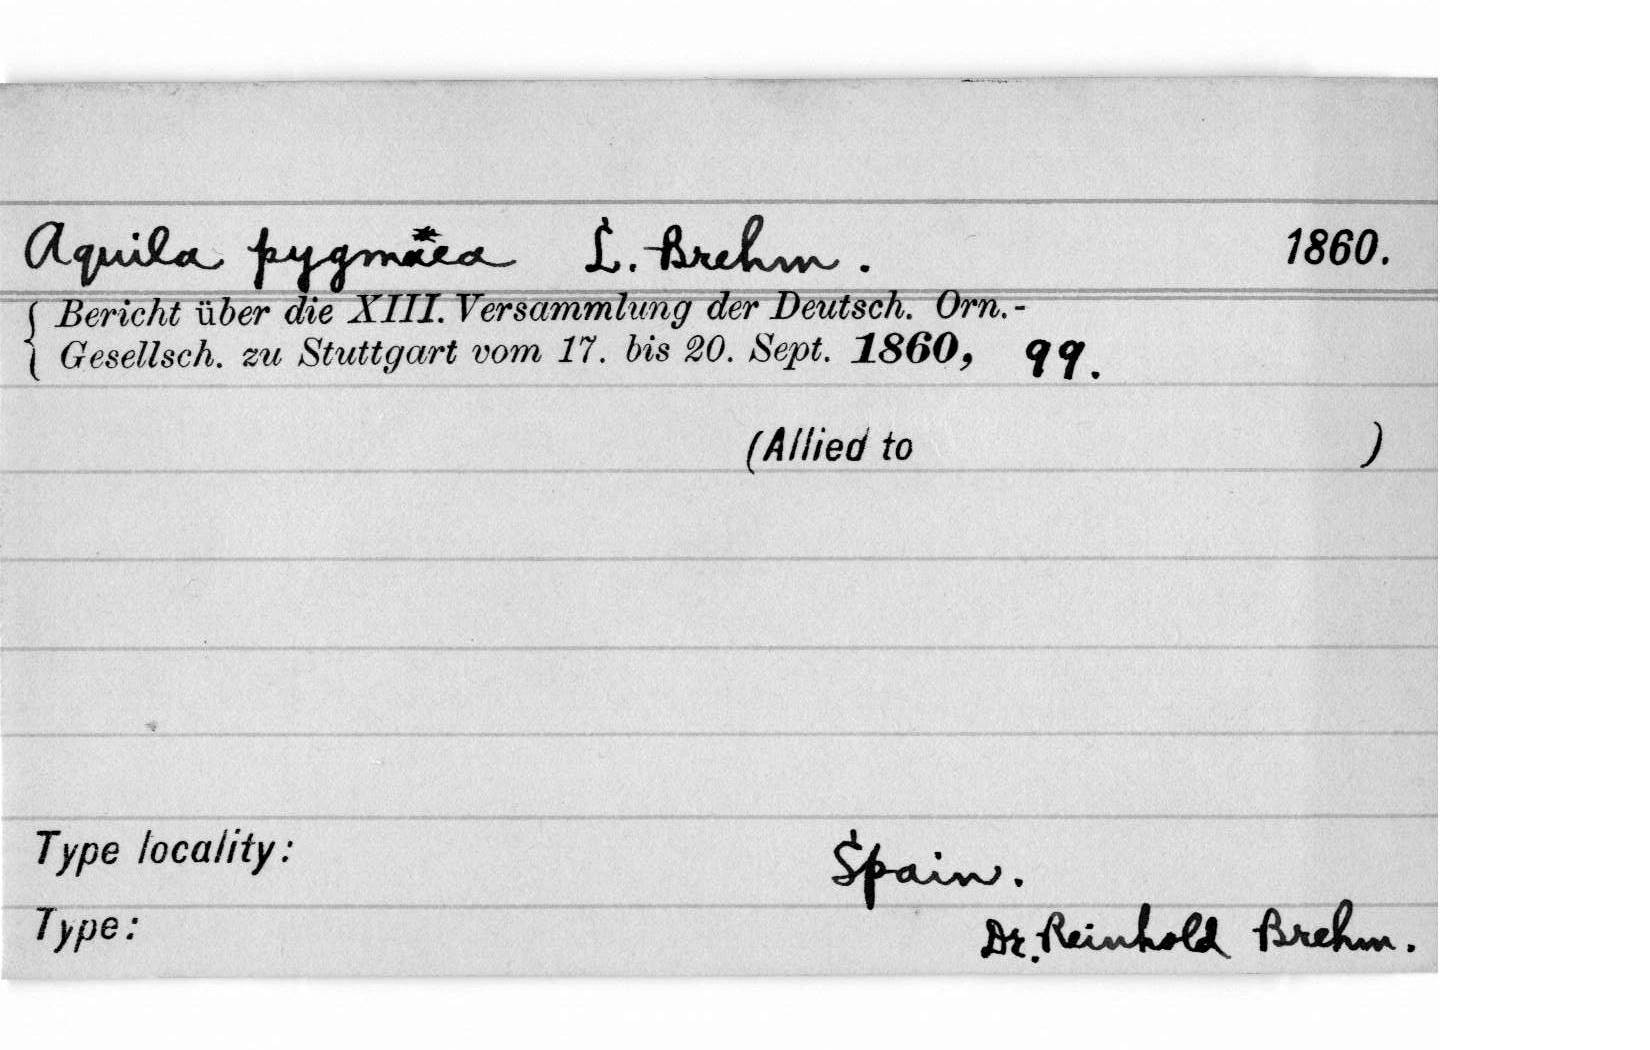 Aquila pygmäea L. Brehm. 1860.
Bericht über die XIII. Versammlung der Deutsch. Orn.-
Gesellsch. zu Stuttgart vom 17. bis 20. Sept. 1860, 99.
(Allied to )
Type locality: Spain.
Type: Dr. Reinhold Brehm.